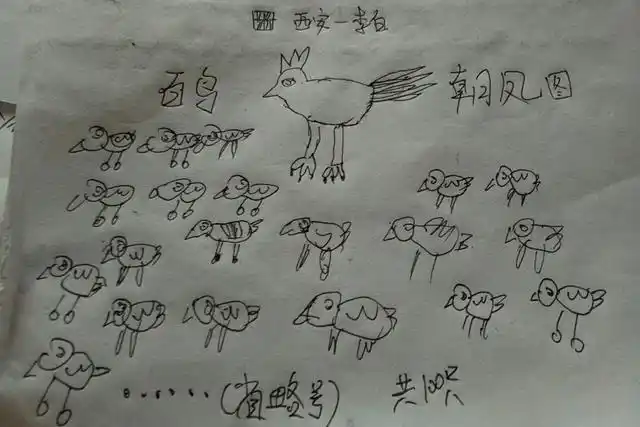 西安一李白
百鸟 朝凤图
......(省略号) 共100只